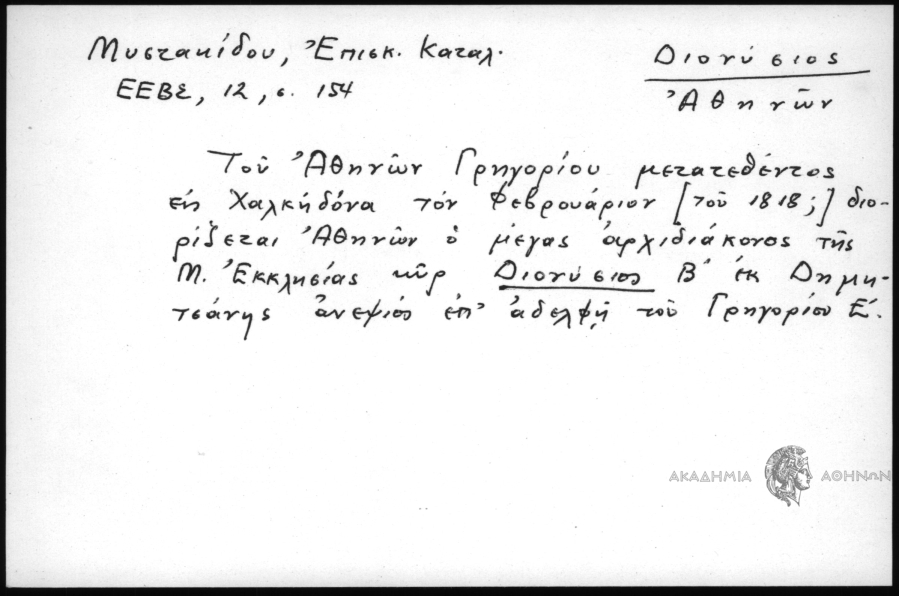 Μυστακίδου, Ἐπισκ. Καταλ.
ΕΕΒΣ, 12, σ. 154
Διονύσιος
Ἀθηνῶν
Τοῦ Ἀθηνῶν Γρηγορίου μετατεθέντος
εἰς Χαλκηδόνα τόν Φεβρουάριον [τοῦ 1818;] διο-
ρίζεται Ἀθηνῶν ὁ μέγας ἀρχιδιάκονος τῆς
Μ. Ἐκκλησίας κῦρ Διονύσιος Β΄ ἐκ Δημη-
τσάνης ἀνεψιός ἐπ' ἀδελφῇ τοῦ Γρηγορίου Ε΄.
ΑΚΑΔΗΜΙΑ ΑΘΗΝΩΝ